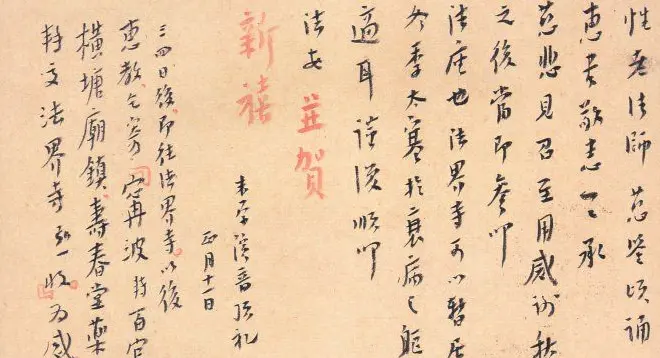 性老法師慈鑒頃誦
惠書敬悉一一承
慈悲見召至用感謝秋
之後當即參叩
法座也法界寺可以暫居
冬季太寒於衰病之軀
適耳謹復順叩
法安 並賀
新禧
末學演音頂礼
正月十一日
三四日後即往法界寺以後
惠教乞寄 寧波轉百官
橫塘廟鎮壽春堂藥
轉交法界寺弘一收為感